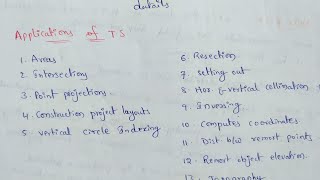 details
Applications of TS
1. Areas
2. Intersections
3. Point projections.
4. Construction project layouts
5. vertical circle Indexing
6. Resection
7. Setting out
8. Hoz &vertical collimation
9. Inversing
10. Computes coordinates
11. Dist b/w remort points.
12. Remort object elevation.
13. Topography